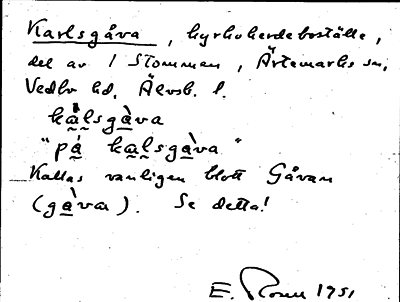 Karlsgåva, kyrkoherdeboställe,
del av 1 Stommen, Ärtemarks sn,
Vedbo hd, Älvsb. l.
kȧ̰lsgà̰va
"pá̰ ka̰lsgà̰va"
Kallas vanligen blott Gåvan
(gà̰van). Se detta!
E. Rosen 1951